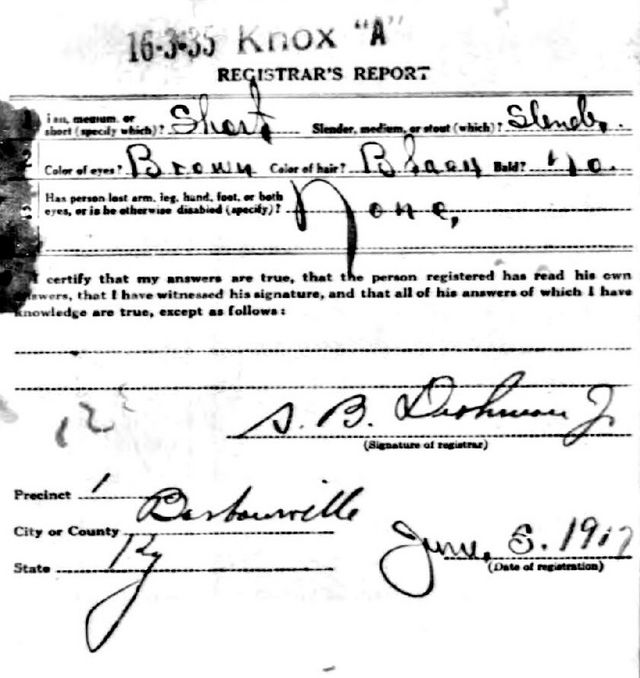 16-3-35 Knox "A"
REGISTRAR'S REPORT
1 Tall, medium, or short (specify which)? Short Slender, medium, or stout (which)? Slender
2 Color of eyes? Brown Color of hair? Black Bald? no.
3 Has person lost arm, leg, hand, foot, or both
eyes, or is he otherwise disabled (specify)? None,
I certify that my answers are true, that the person registered has read his own
answers, that I have witnessed his signature, and that all of his answers of which I have
knowledge are true, except as follows:
S. B. Jr
(Signature of registrar)
Precinct 1
City or County Barbourville
State Ky
June, 5. 1917
(Date of registration)